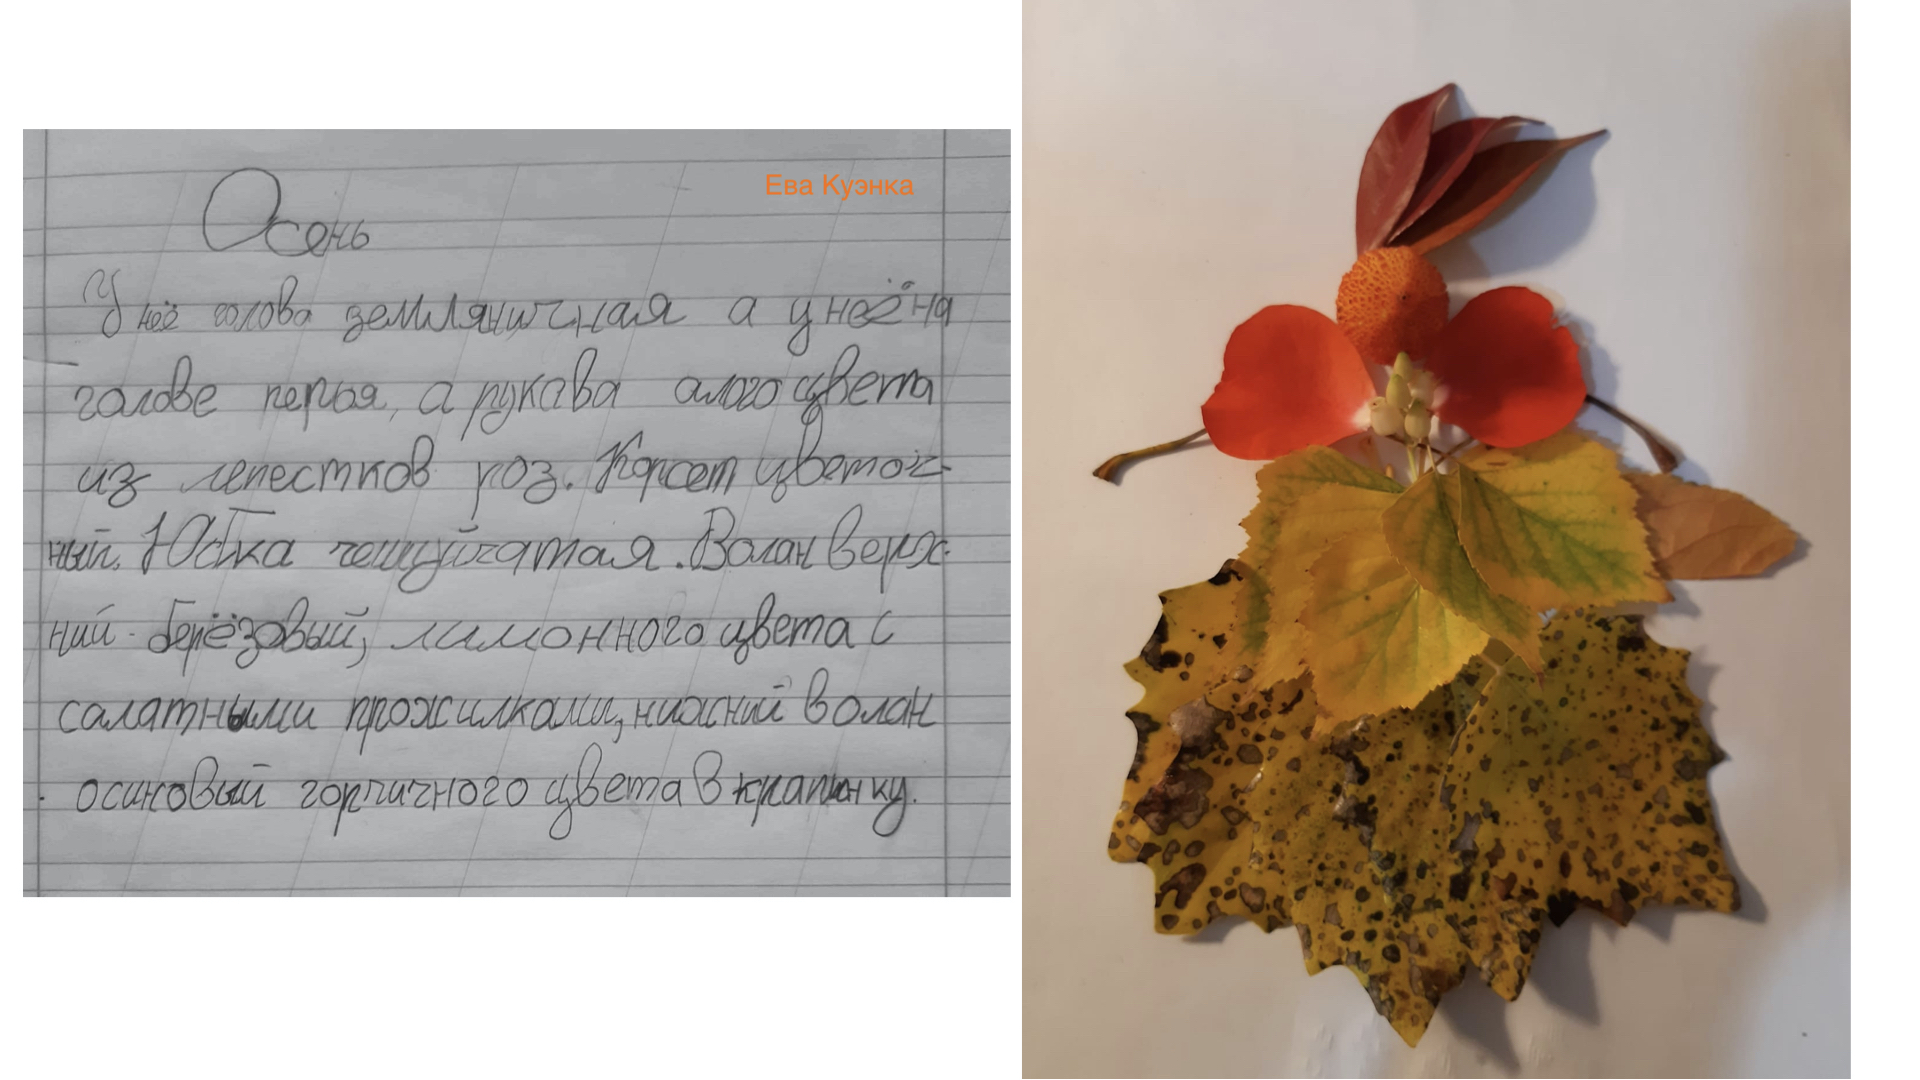 Ева Куэнка
Осень
У неё голова земляничная а у неё на
голове перья, а рукава алого цвета
из лепестков роз. Корсет цветоч-
ный. Юбка чешуйчатая. Волан верх-
ний - берёзовый, лимонного цвета с
салатными прожилками, нижний волан
осиновый горчичного цвета в крапинку.